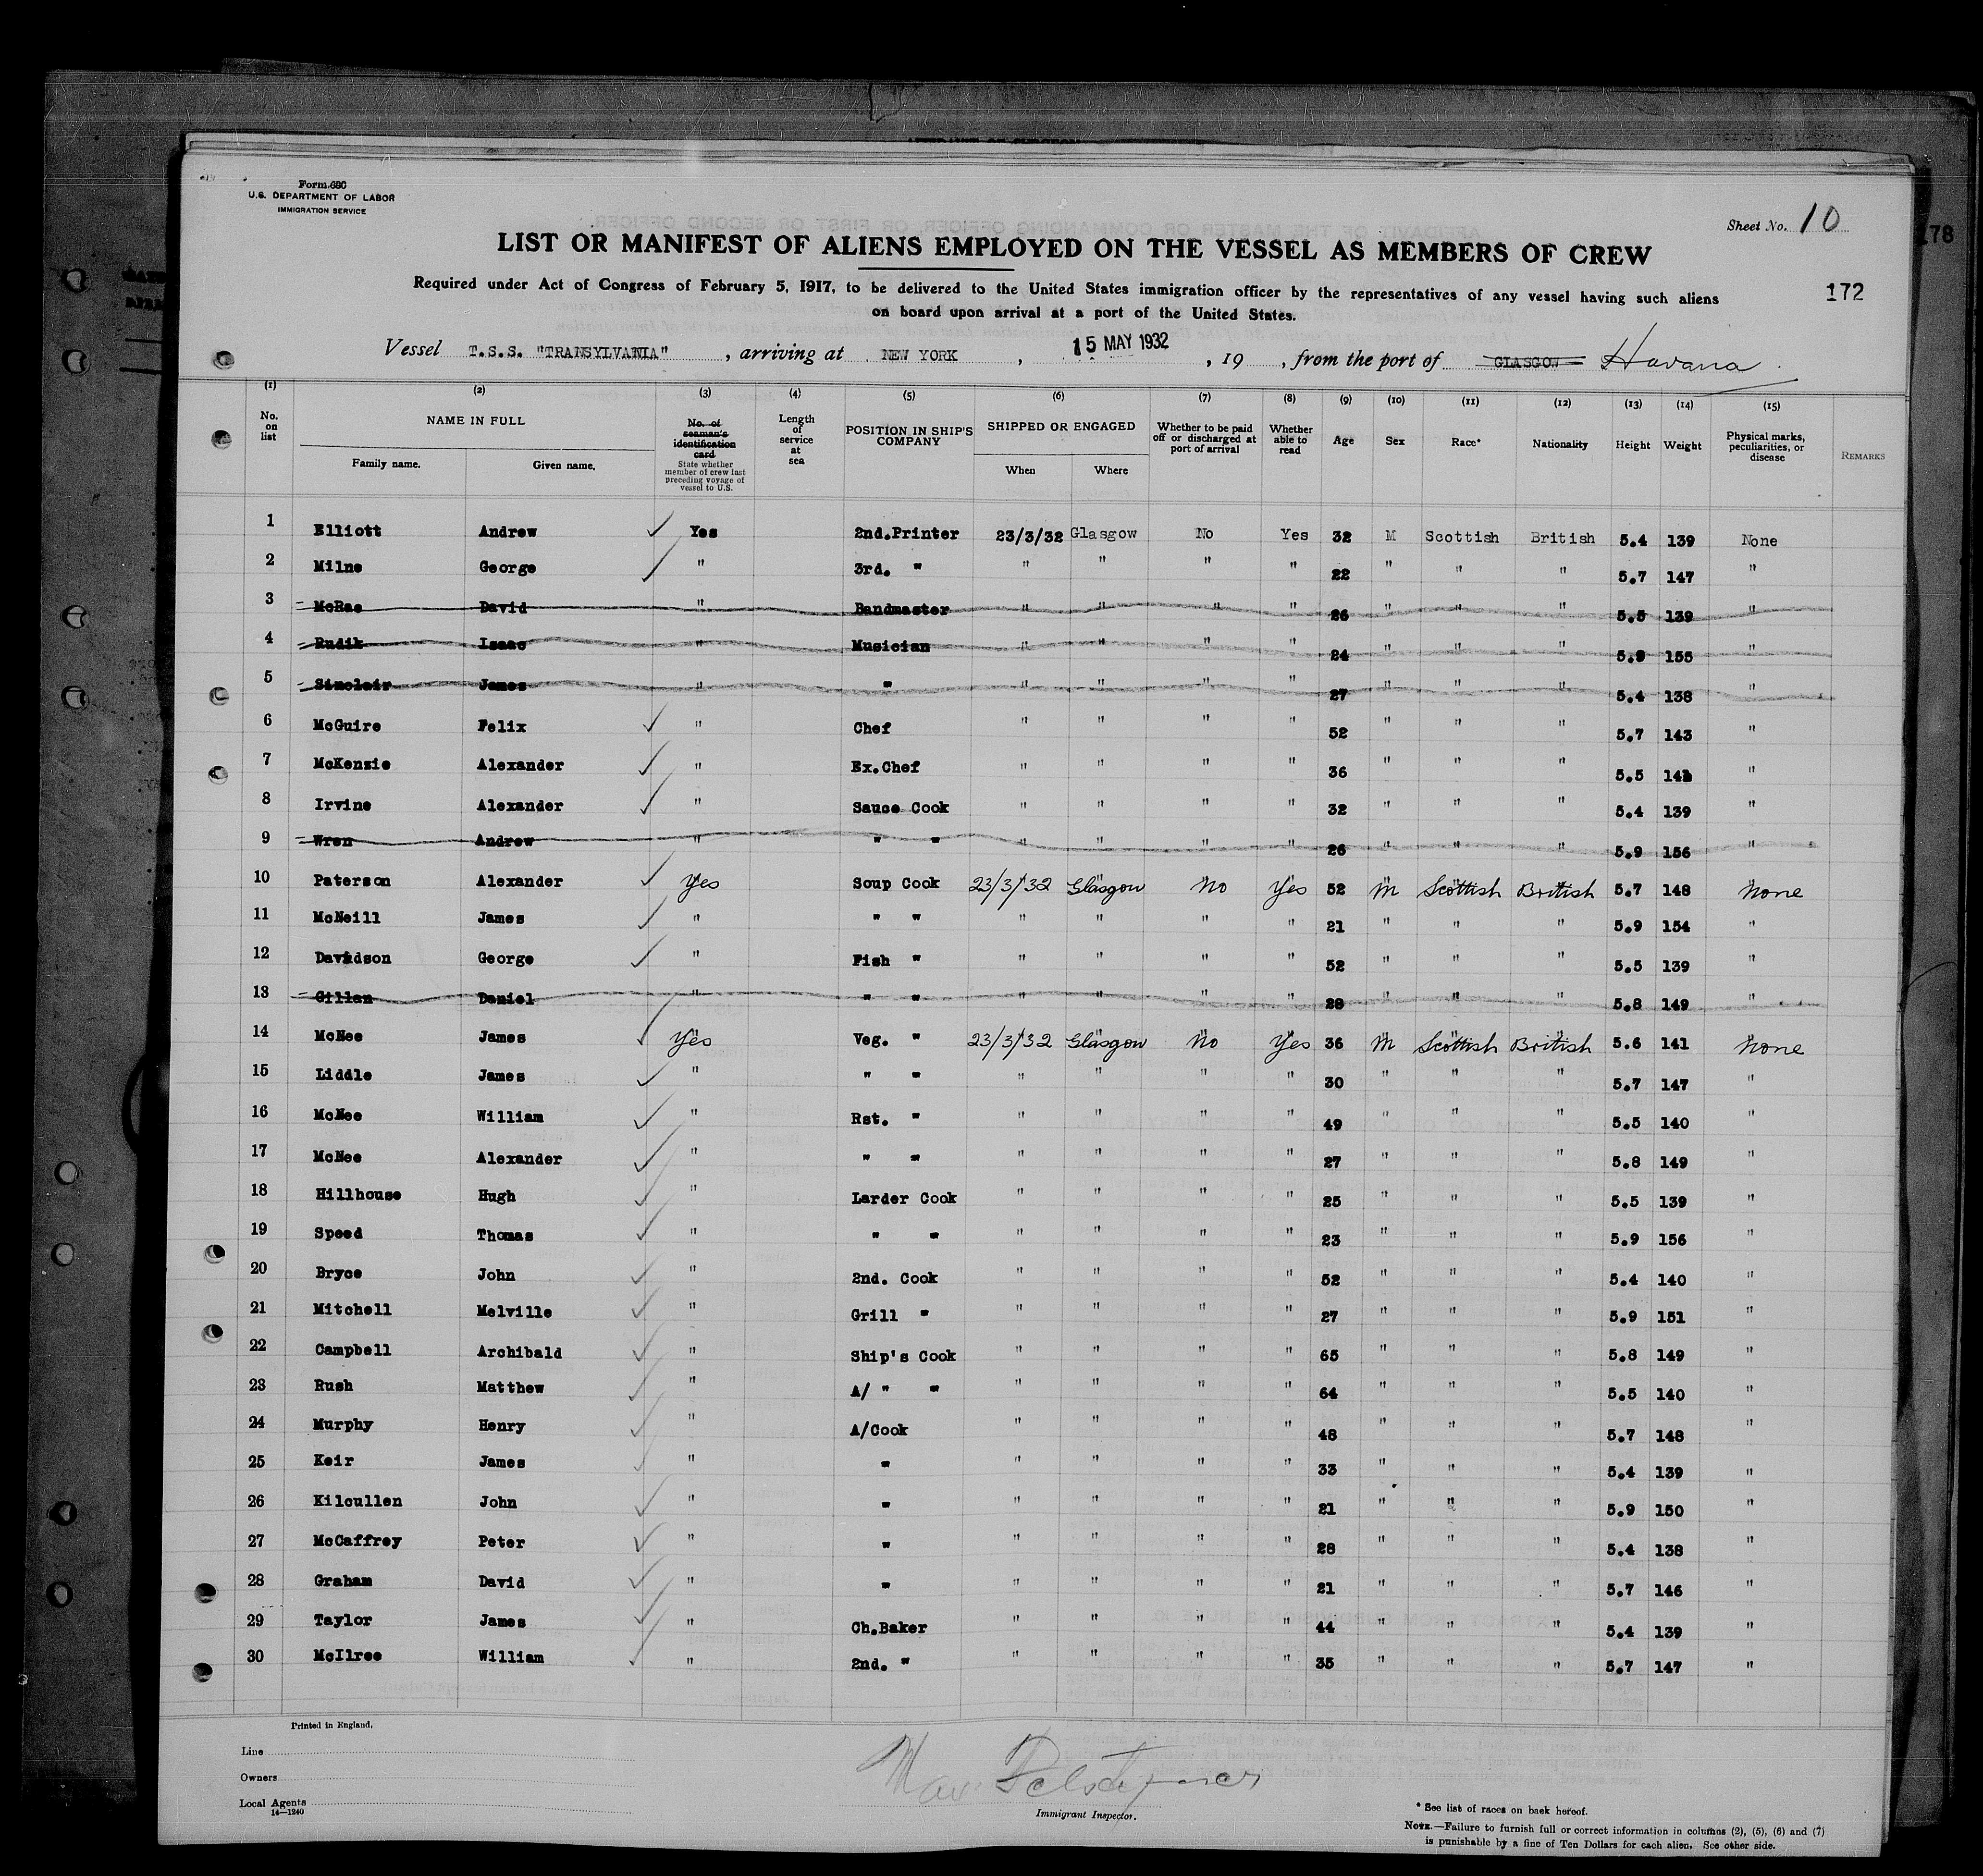 Form 680
U.S. DEPARTMENT OF LABOR
IMMIGRATION SERVICE
Sheet No. 10
178
LIST OR MANIFEST OF ALIENS EMPLOYED ON THE VESSEL AS MEMBERS OF CREW
172
Required under Act of Congress of February 5, 1917, to be delivered to the United States immigration officer by the representatives of any vessel having such aliens
on board upon arrival at a port of the United States.
Vessel T.S.S. "TRANSYLVANIA", arriving at NEW YORK, 15 MAY 1932, 19 , from the port of GLASGOW Havana
(1) (2) (3) (4) (5) (6) (7) (8) (9) (10) (11) (12) (13) (14) (15)
No. on list NAME IN FULL Family name. Given name. No. of seaman's identification card State whether member of crew last preceding voyage of vessel to U.S. Length of service at sea POSITION IN SHIP'S COMPANY SHIPPED OR ENGAGED When Where Whether to be paid off or discharged at port of arrival Whether able to read Age Sex Race* Nationality Height Weight Physical marks, peculiarities, or disease REMARKS
1 Elliott Andrew ✓ Yes 2nd.Printer 23/3/32 Glasgow No Yes 32 M Scottish British 5.4 139 None
2 Milne George ✓ " 3rd. " " " " " 22 " " " 5.7 147 "
3 McRae David " Bandmaster " " " " 26 " " " 5.5 139 "
4 Rudik Isaac " Musician " " " " 24 " " " 5.9 155 "
5 Sinclair James " " " " " " 27 " " " 5.4 138 "
6 McGuire Felix ✓ " Chef " " " " 52 " " " 5.7 143 "
7 McKenzie Alexander ✓ " Ex.Chef " " " " 36 " " " 5.5 142 "
8 Irvine Alexander ✓ " Sauce Cook " " " " 32 " " " 5.4 139 "
9 Wren Andrew " " " " " " " 26 " " " 5.9 156 "
10 Paterson Alexander ✓ Yes Soup Cook 23/3/32 Glasgow No Yes 52 M Scottish British 5.7 148 None
11 McNeill James ✓ " " " " " " " 21 " " " 5.9 154 "
12 Davidson George ✓ " Fish " " " " " 52 " " " 5.5 139 "
13 Gillan Daniel " " " " " " " 28 " " " 5.8 149 "
14 McNee James ✓ Yes Veg. " 23/3/32 Glasgow No Yes 36 M Scottish British 5.6 141 None
15 Liddle James ✓ " " " " " " " 30 " " " 5.7 147 "
16 McNee William ✓ " Rst. " " " " " 49 " " " 5.5 140 "
17 McNee Alexander ✓ " " " " " " " 27 " " " 5.8 149 "
18 Hillhouse Hugh ✓ " Larder Cook " " " " 25 " " " 5.5 139 "
19 Speed Thomas ✓ " " " " " " " 23 " " " 5.9 156 "
20 Bryce John ✓ " 2nd. Cook " " " " 52 " " " 5.4 140 "
21 Mitchell Melville ✓ " Grill " " " " " 27 " " " 5.9 151 "
22 Campbell Archibald ✓ " Ship's Cook " " " " 65 " " " 5.8 149 "
23 Rush Matthew ✓ " A/ " " " " " " 64 " " " 5.5 140 "
24 Murphy Henry ✓ " A/Cook " " " " 48 " " " 5.7 148 "
25 Keir James ✓ " " " " " " 33 " " " 5.4 139 "
26 Kilcullen John ✓ " " " " " " 21 " " " 5.9 150 "
27 McCaffrey Peter ✓ " " " " " " 28 " " " 5.4 138 "
28 Graham David ✓ " " " " " " 21 " " " 5.7 146 "
29 Taylor James ✓ " Ch.Baker " " " " 44 " " " 5.4 139 "
30 McIlree William ✓ " 2nd. " " " " " 35 " " " 5.7 147 "
Printed in England.
Line
Owners
Local Agents
14—1240
Immigrant Inspector.
* See list of races on back hereof.
NOTE.—Failure to furnish full or correct information in columns (2), (5), (6) and (7)
is punishable by a fine of Ten Dollars for each alien. See other side.